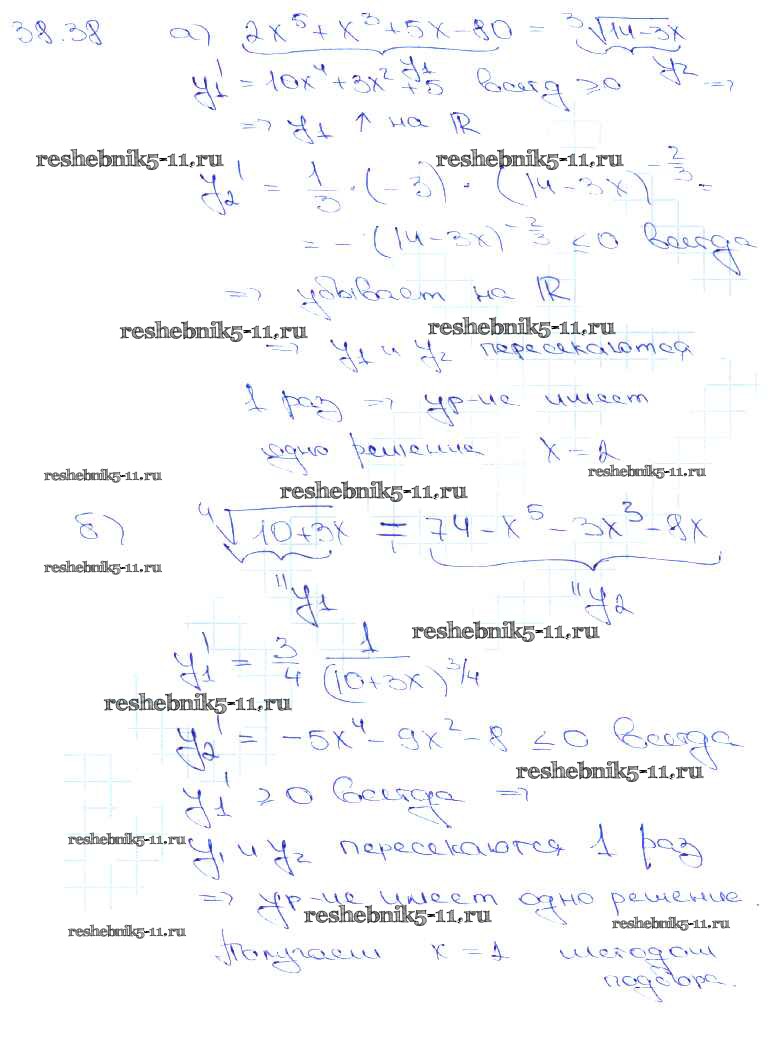 38.38 а) 2x⁵ + x³ + 5x - 80 = ³√14-3x
y₁ y₂
y₁' = 10x⁴ + 3x² + 5 всегд ≥0 =>
=> y₁ ↑ на ℝ
reshebnik5-11.ru reshebnik5-11.ru
y₂' = 1/3 · (-3) · (14-3x)^(-2/3) =
= - (14-3x)^(-2/3) ≤ 0 всегда
=> убывает на ℝ
reshebnik5-11.ru reshebnik5-11.ru
=> y₁ и y₂ пересекаются
1 раз => ур-ие имеет
одно решение x = 2
reshebnik5-11.ru reshebnik5-11.ru
reshebnik5-11.ru
б) ⁴√10+3x = 74 - x⁵ - 3x³ - 8x
reshebnik5-11.ru
"y₁ "y₂
reshebnik5-11.ru
y₁' = 3/4 1/(10+3x)^(3/4)
reshebnik5-11.ru
y₂' = -5x⁴ - 9x² - 8 ≤ 0 всегда
reshebnik5-11.ru
y₁' ≥ 0 всегда =>
reshebnik5-11.ru
y₁ и y₂ пересекаются 1 раз
=> ур-ие имеет одно решение.
reshebnik5-11.ru reshebnik5-11.ru
reshebnik5-11.ru
Получаем x = 1 методом
подбора.